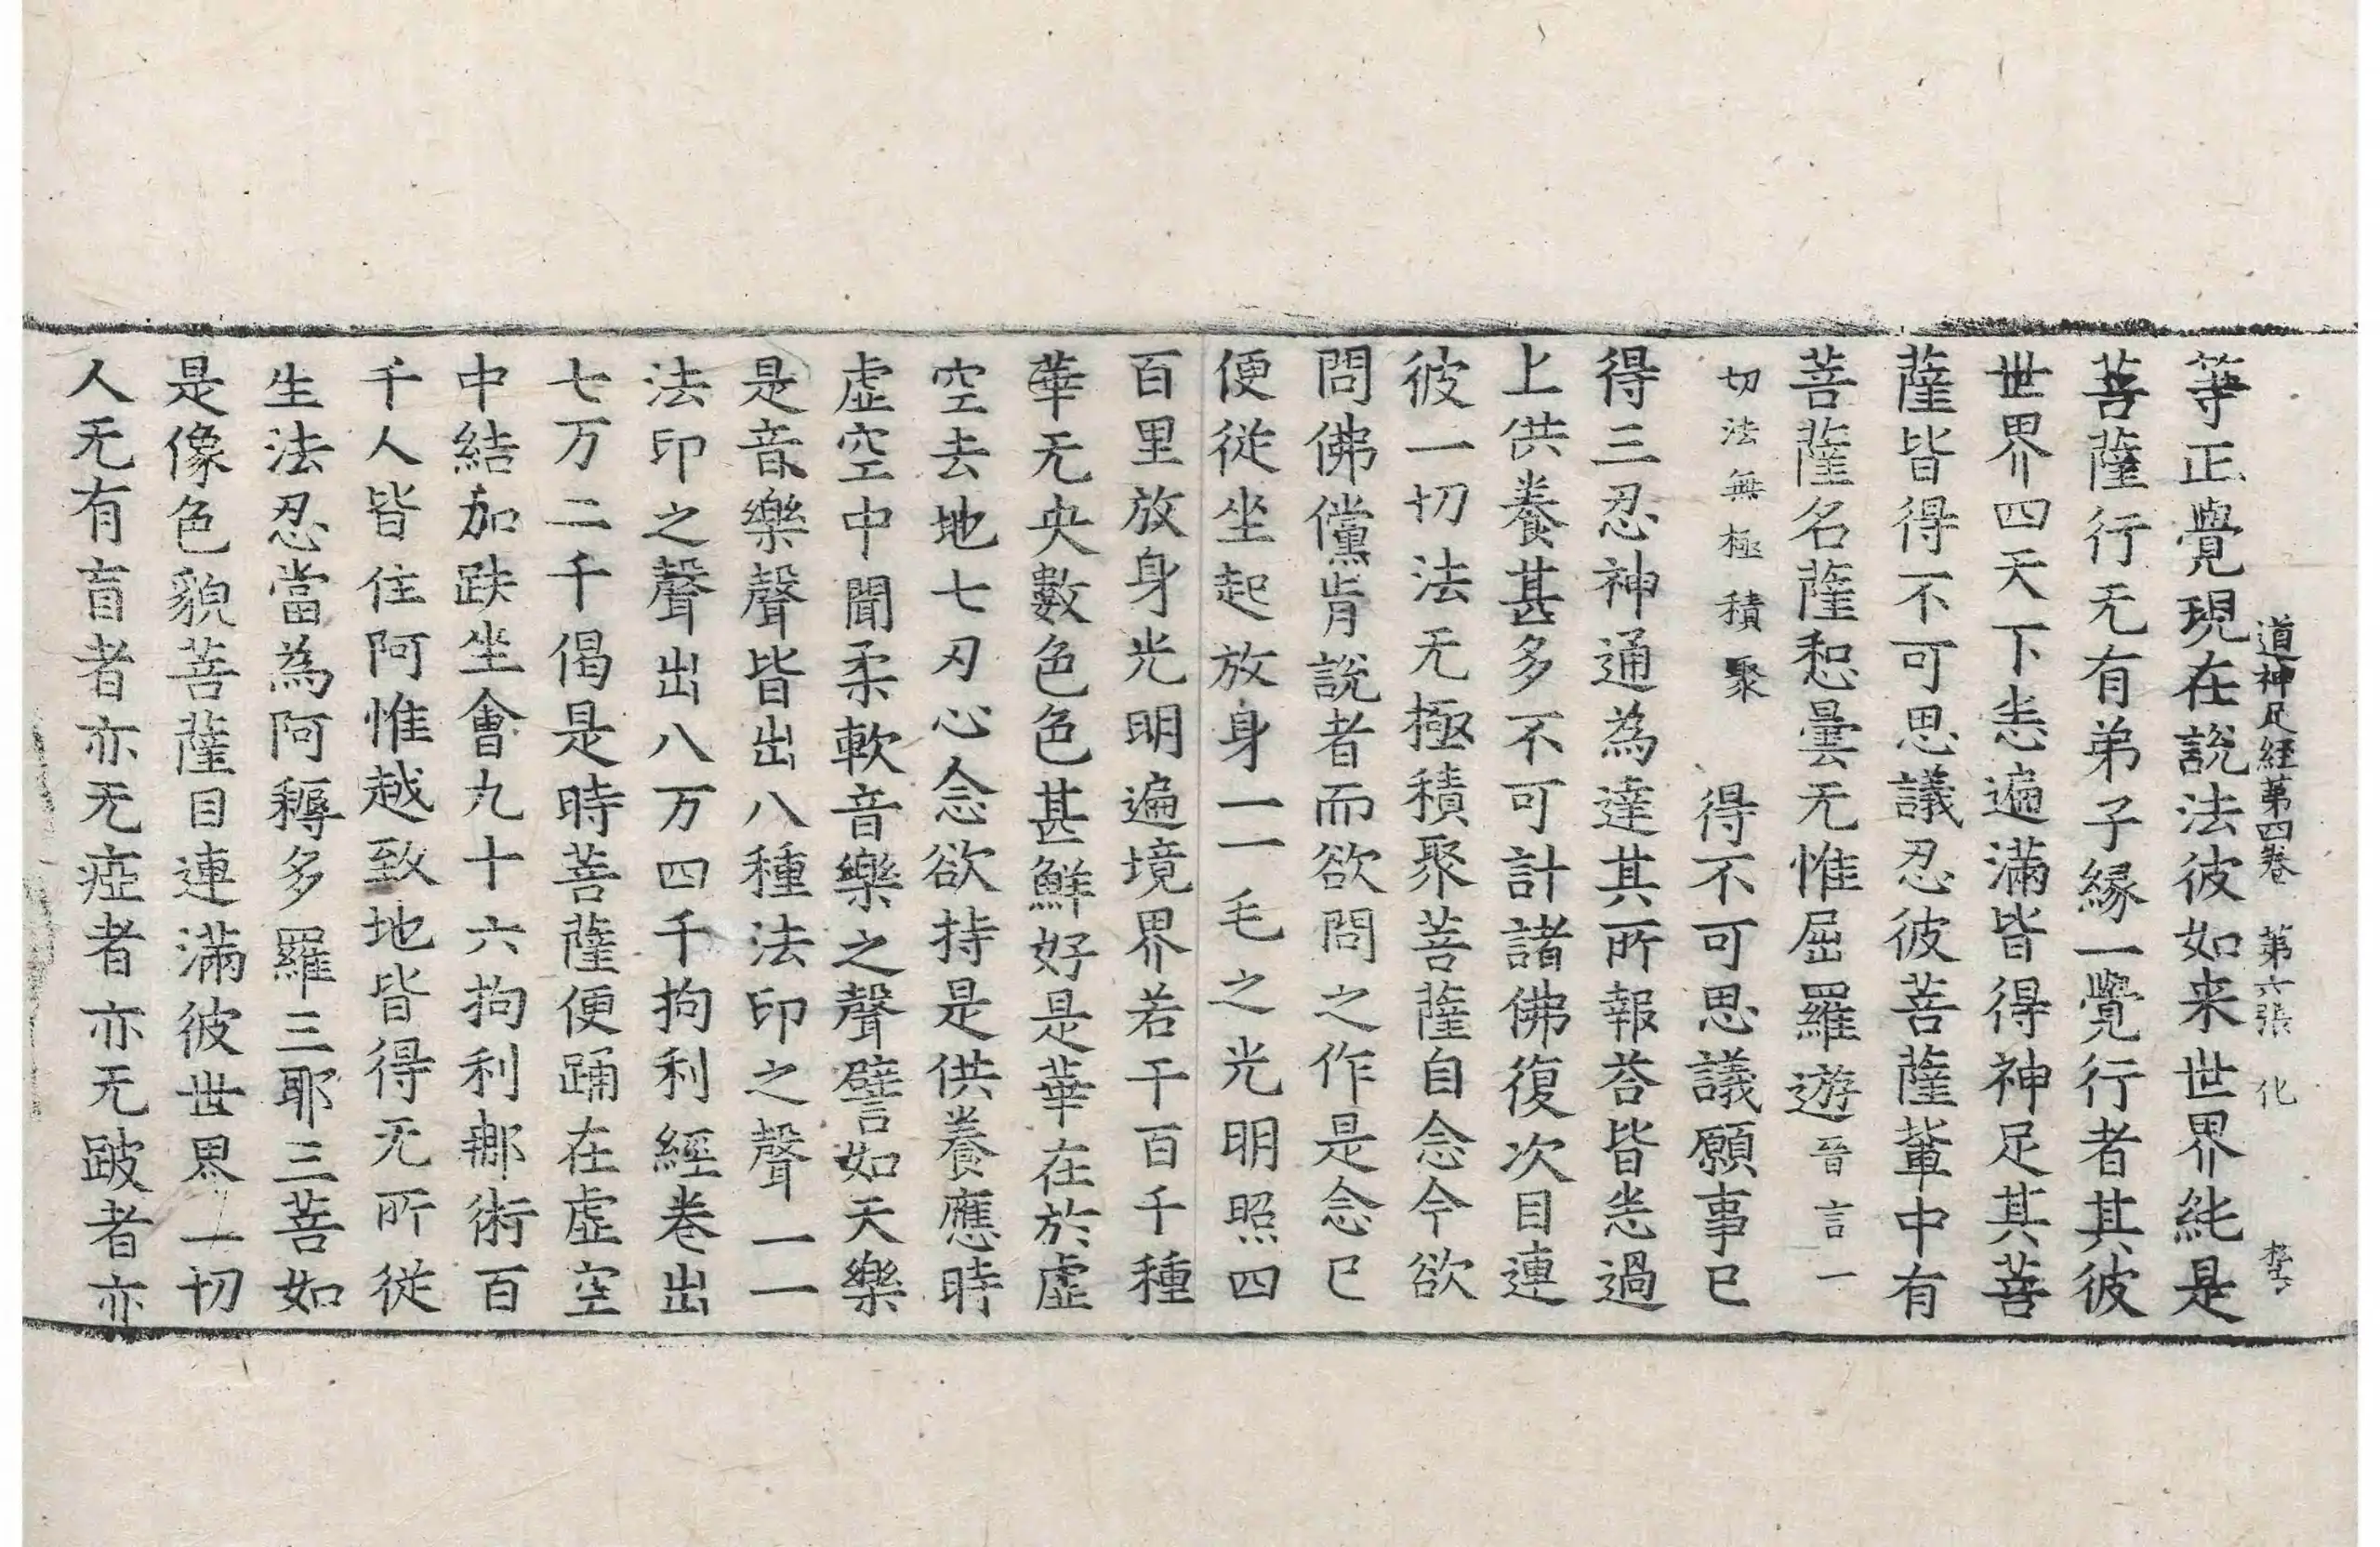 道神足經第四卷　第六張　化
等正覺現在說法彼如来世界純是
菩薩行无有弟子緣一覺行者其彼
世界四天下恙遍滿皆得神足其菩
薩皆得不可思議忍彼菩薩輩中有
菩薩名薩惒曇无惟屈羅遊晉言一
切法無極積聚　得不可思議願事已
得三忍神通為達其所報荅皆恙過
上供養甚多不可計諸佛復次目連
彼一切法无極積聚菩薩自念今欲
問佛儻肯說者而欲問之作是念已
便從坐起放身一一毛之光明照四
百里放身光明遍境界若干百千種
華无央數色色甚鮮好是華在於虛
空去地七刃心念欲持是供養應時
虛空中聞柔軟音樂之聲譬如天樂
是音樂聲皆出八種法印之聲一一
法印之聲出八万四千拘利經卷出
七万二千偈是時菩薩便踊在虛空
中結加趺坐會九十六拘利那術百
千人皆住阿惟越致地皆得无所從
生法忍當為阿耨多羅三耶三菩如
是像色貌菩薩目連滿彼世界一切
人无有盲者亦无瘂者亦无跛者亦